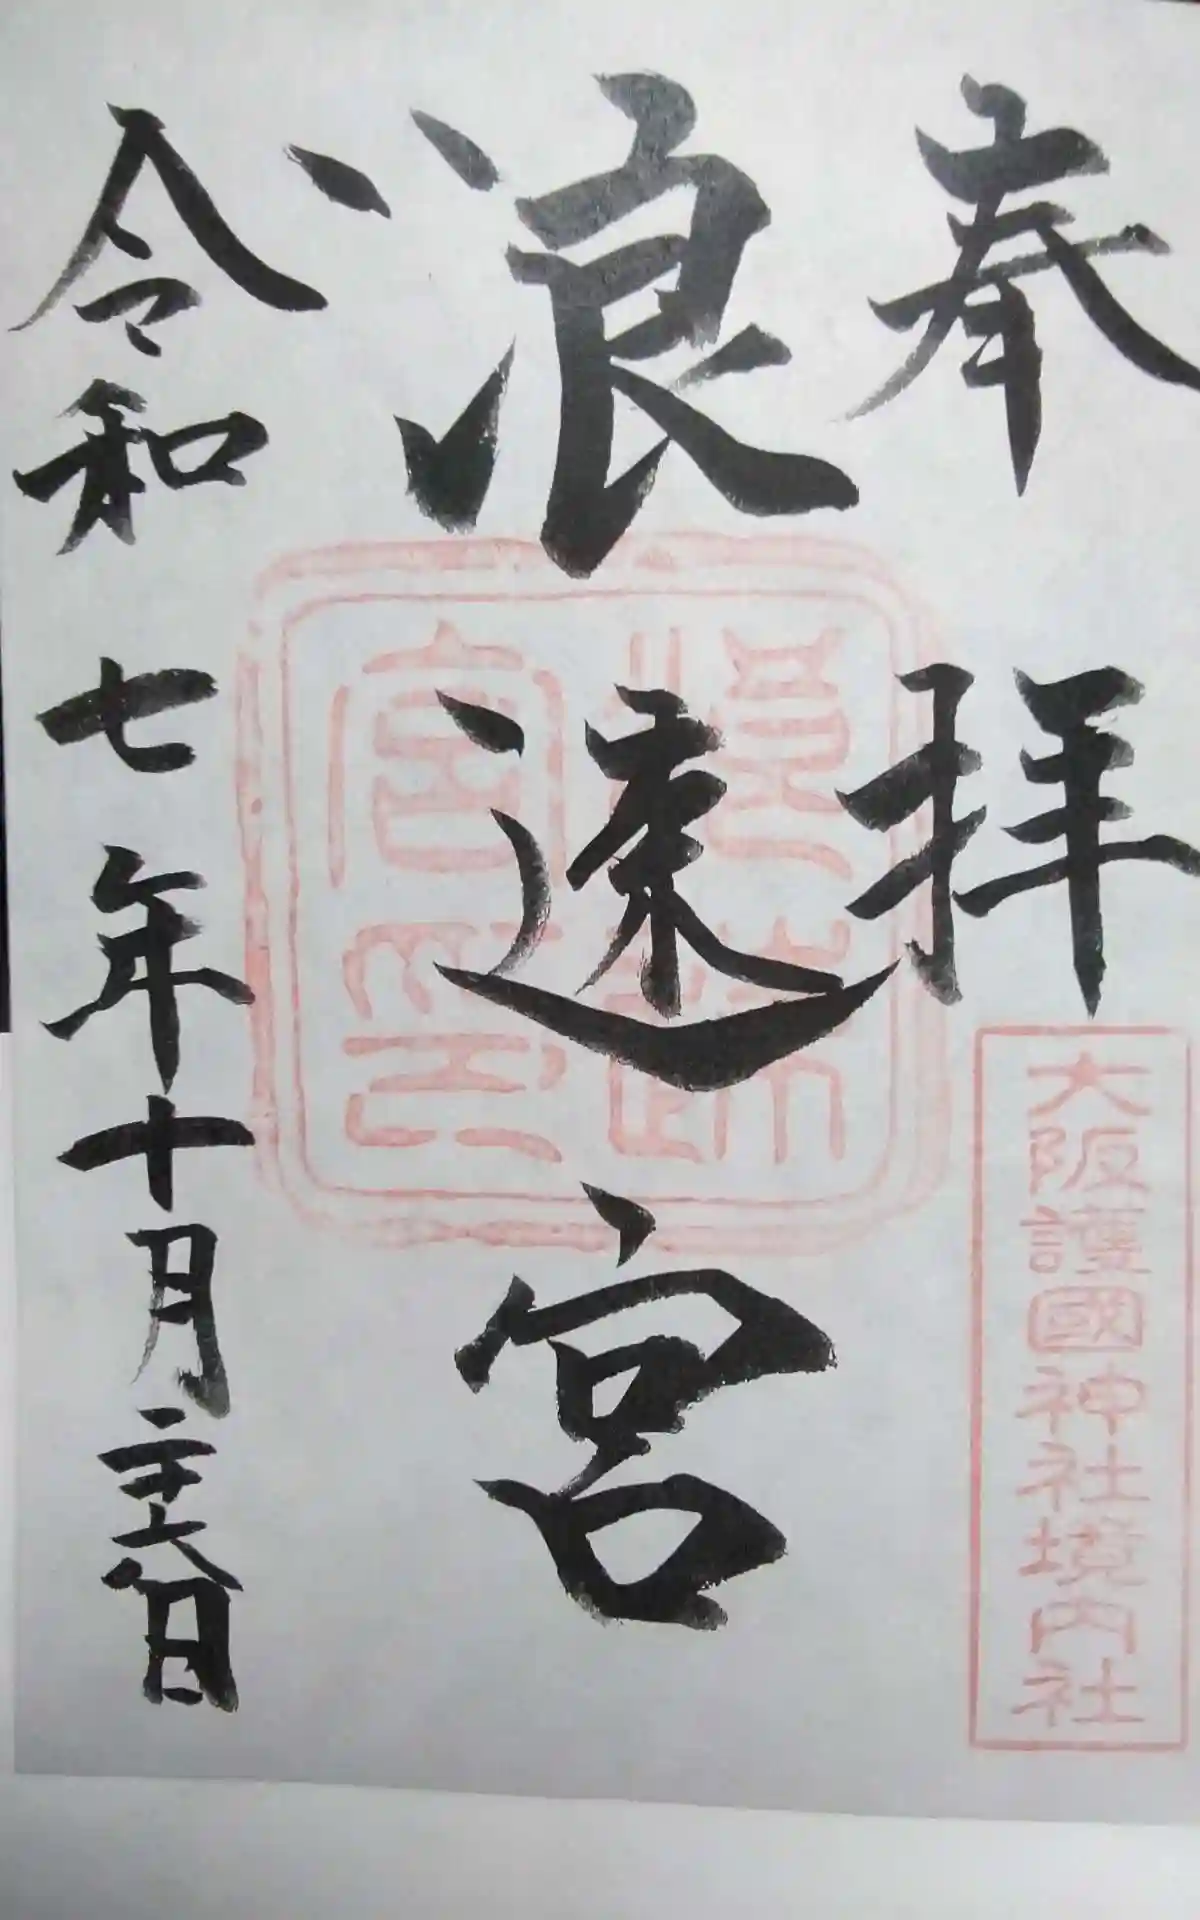 奉拝
大阪護國神社境内社
浪速宮
令和七年十月二十六日